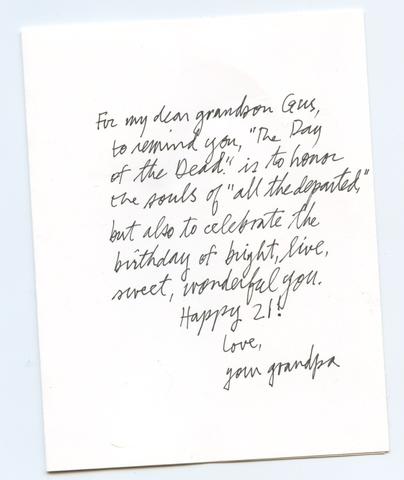 For my dear grandson Gus,
to remind you, "The Day
of the Dead" is to honor
the souls of "all the departed,"
but also to celebrate the
birthday of bright, live,
sweet, wonderful you.
Happy 21!
Love,
your grandpa